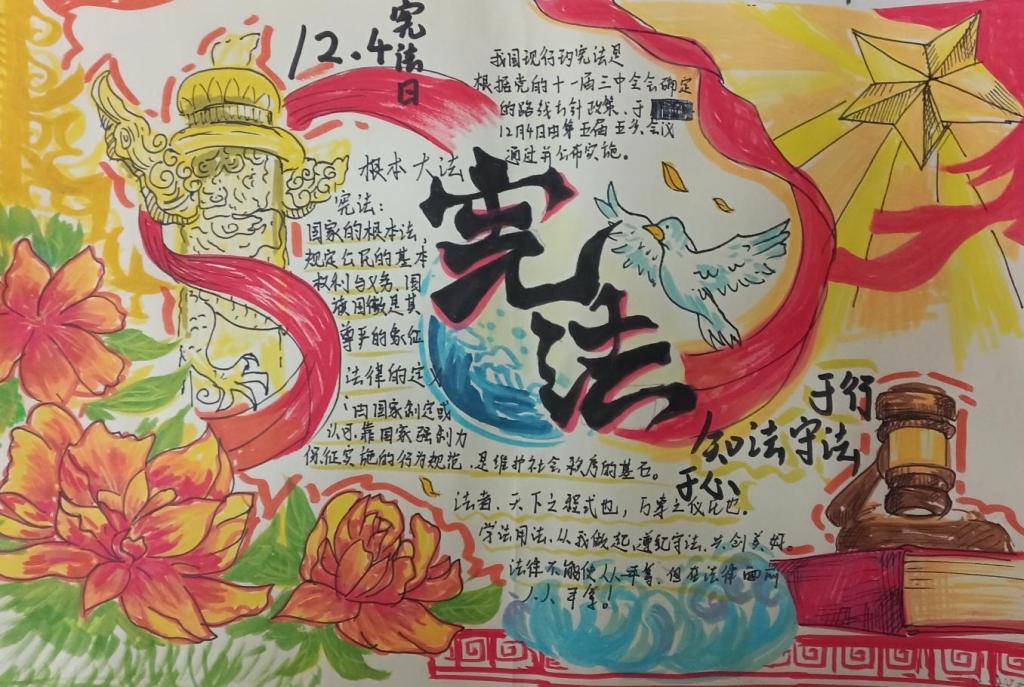 12.4
宪法日
我国现行的宪法是
根据党的十一届三中全会确定
的路线方针政策、于
12月4日由第五届五次会议
通过并公布实施。
根本大法
宪法
宪法：
国家的根本法，
规定公民的基本
权利与义务，国
旗国徽是其
尊严的象征
法律的定义
由国家制定或
认可靠国家强制力
保证实施的行为规范，是维护社会秩序的基石。
知法守法
于行
于心
法者、天下之程式也，万事之仪化也。
学法用法、从我做起，遵纪守法、共创美好。
法律不能使人人平等，但在法律面前
人人平等！